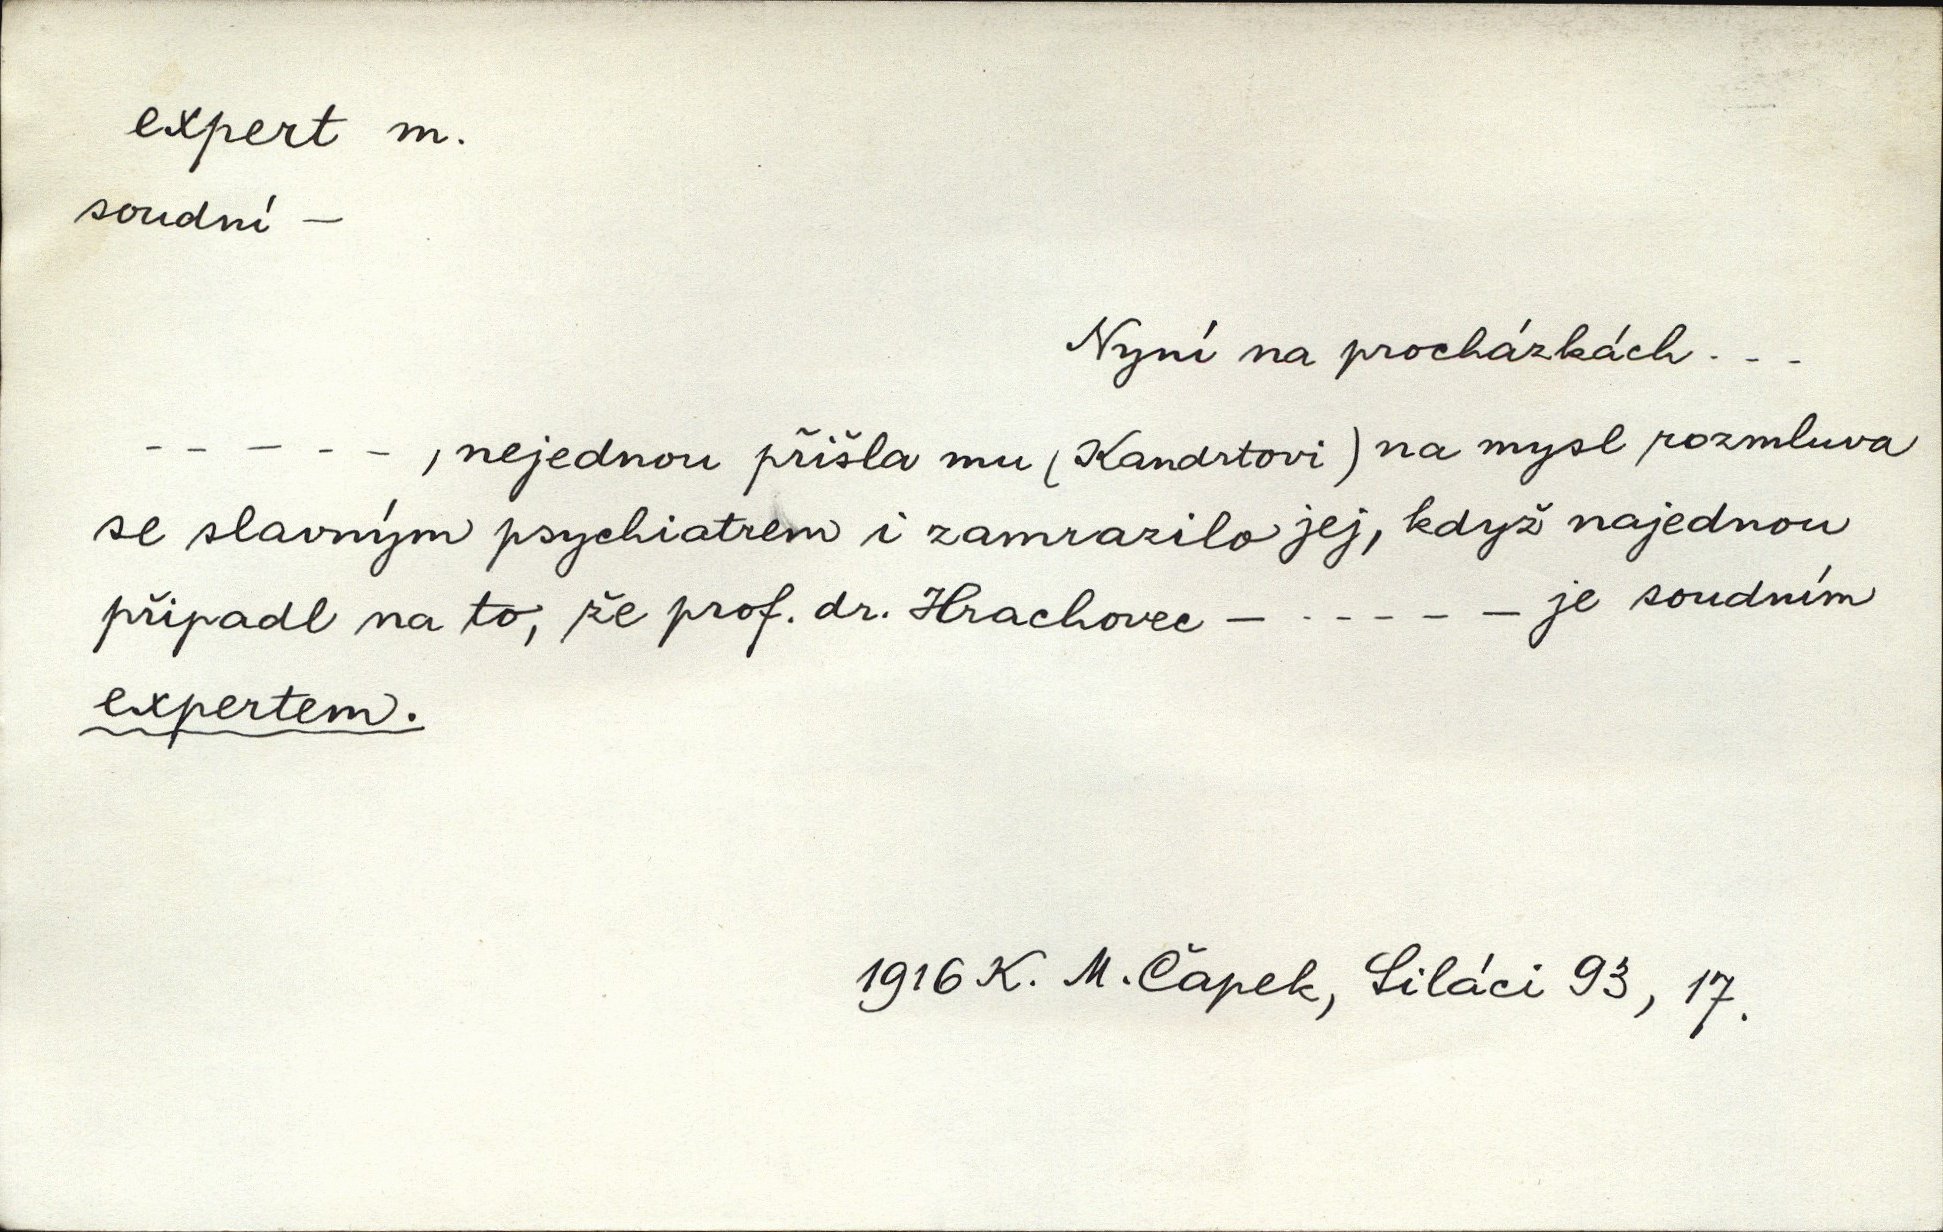 expert m.
soudní —
Nyní na procházkách . - -
- - - - - , nejednou přišla mu (Kandrtovi) na mysl rozmluva
se slavným psychiatrem i zamrazilo jej, když najednou
připadl na to, že prof. dr. Hrachovec — . - - - - — je soudním
expertem.
1916 K. M. Čapek, Siláci 93, 17.